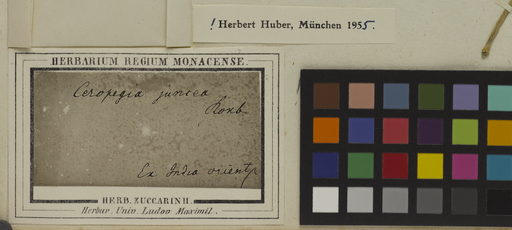 ! Herbert Huber, München 1955.
HERBARIUM REGIUM MONACENSE.
Ceropegia juncea
Roxb.
Ex India orient.
HERB. ZUCCARINII.
Herbar. Univ. Ludov. Maximil.